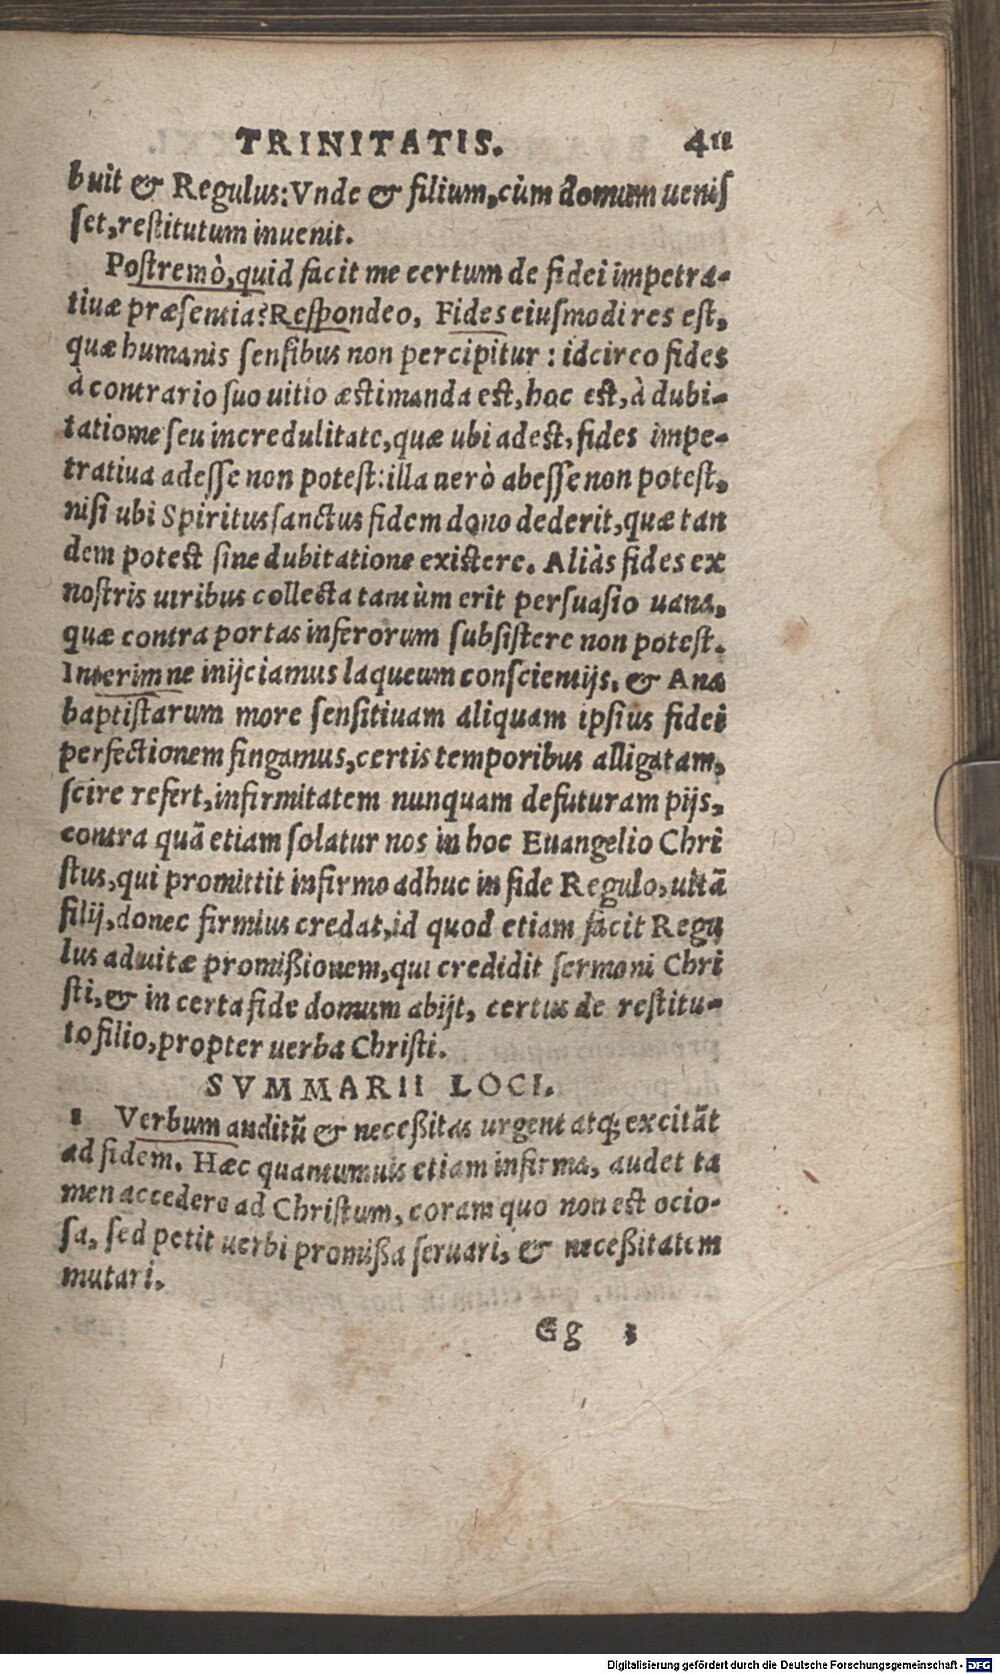 TRINITATIS. 411
buit & Regulus: Vnde & filium, cùm domum uenis
set, restitutum inuenit.
Postremò, quid facit me certum de fidei impetra-
tiuæ præsentia? Respondeo, Fides eiusmodi res est,
quæ humanis sensibus non percipitur: idcirco fides
à contrario suo uitio æstimanda est, hoc est, à dubi-
tatione seu incredulitate, quæ ubi adest, fides impe-
tratiua adesse non potest: illa uerò abesse non potest,
nisi ubi Spiritus sanctus fidem dono dederit, quæ tan
dem potest sine dubitatione existere. Aliàs fides ex
nostris uiribus collecta tantùm erit persuasio uana,
quæ contra portas inferorum subsistere non potest.
Interim ne inijciamus laqueum conscientijs, & Ana
baptistarum more sensitiuam aliquam ipsius fidei
perfectionem fingamus, certis temporibus alligatam,
scire refert, infirmitatem nunquam defuturam pijs,
contra quã etiam solatur nos in hoc Euangelio Chri
stus, qui promittit infirmo adhuc in fide Regulo, uitã
filij, donec firmius credat, id quod etiam facit Regu
lus ad uitæ promißionem, qui credidit sermoni Chri
sti, & in certa fide domum abijt, certus de restitu-
to filio, propter uerba Christi.
SVMMARII LOCI.
1 Verbum auditũ & neceßitas urgent atq; excitãt
ad fidem. Hæc quantumuis etiam infirma, audet ta
men accedere ad Christum, coram quo non est ocio-
sa, sed petit uerbi promißa seruari, & neceßitatem
mutari.
Gg 3
Digitalisierung gefördert durch die Deutsche Forschungsgemeinschaft - DFG